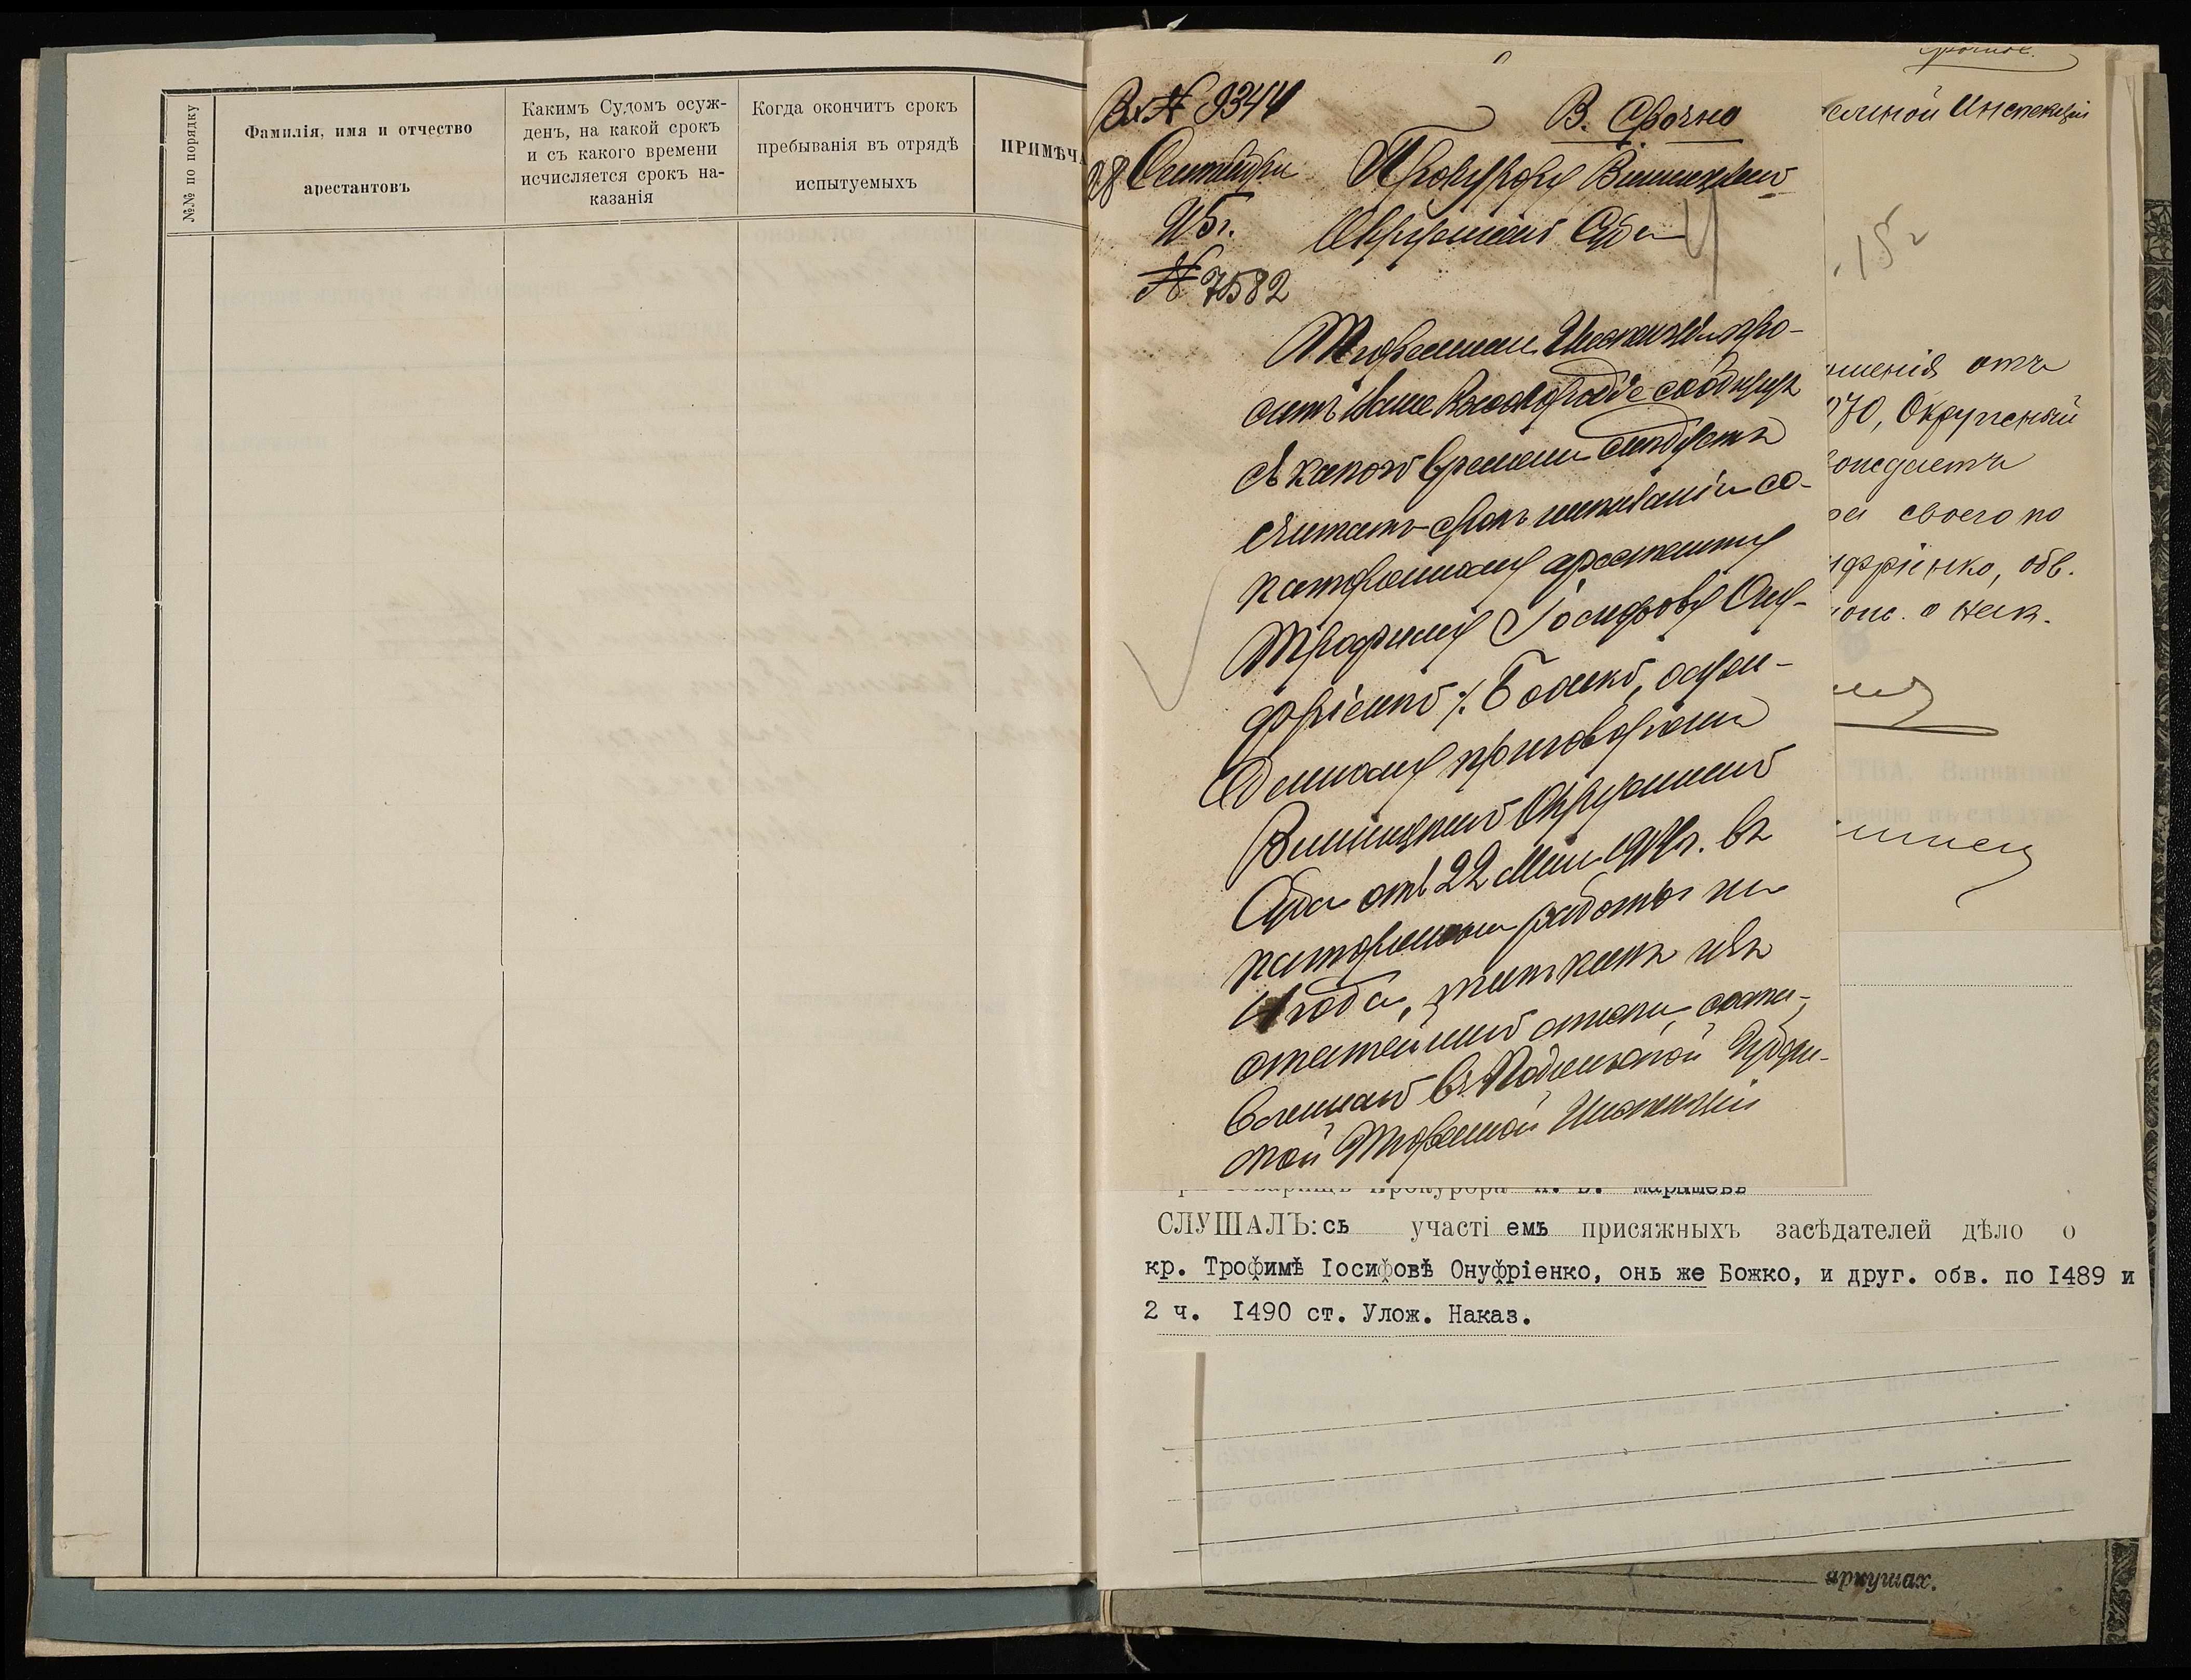 №№ по порядку
Фамилія, имя и отчество
арестантовъ
Какимъ Судомъ осуж-
денъ, на какой срокъ
и съ какого времени
исчисляется срокъ на-
казанія
Когда окончитъ срокъ
пребыванія въ отрядѣ
испытуемыхъ
ПРИМѢЧА
Вх № 9344
28 Сентября
15г.
№ 7582
В. Срочно
Прокурору Винницкаго
Окружнаго Суда
Тюремная Инспекція про-
ситъ Ваше Высокородіе сообщить
съ какого времени слѣдуетъ
считать срокъ наказанія со-
каторжному арестанту
Трофиму Іосифову Ону-
фріенко /. Божко, осуж-
денному приговоромъ
Винницкаго Окружнаго
Суда отъ 22 Мая 1914г. въ
каторжныя работы на
4 года, такъ какъ изъ
статейнаго списка, соста-
вленнаго въ Подольской Губерн-
ской Тюремной Инспекціи
срочное.
емной Инспекціи
15 г
ошенія отъ
070, Окружный
вождаетъ
ра своего по
уфріенко, обв.
нак.
при Товарищѣ Прокурора П. В. Марышевъ
СЛУШАЛЪ: съ участіемъ присяжныхъ засѣдателей дѣло о
кр. Трофимѣ Іосифовѣ Онуфріенко, онъ же Божко, и друг. обв. по I489 и
2 ч. I490 ст. Улож. Наказ.
аркушах.